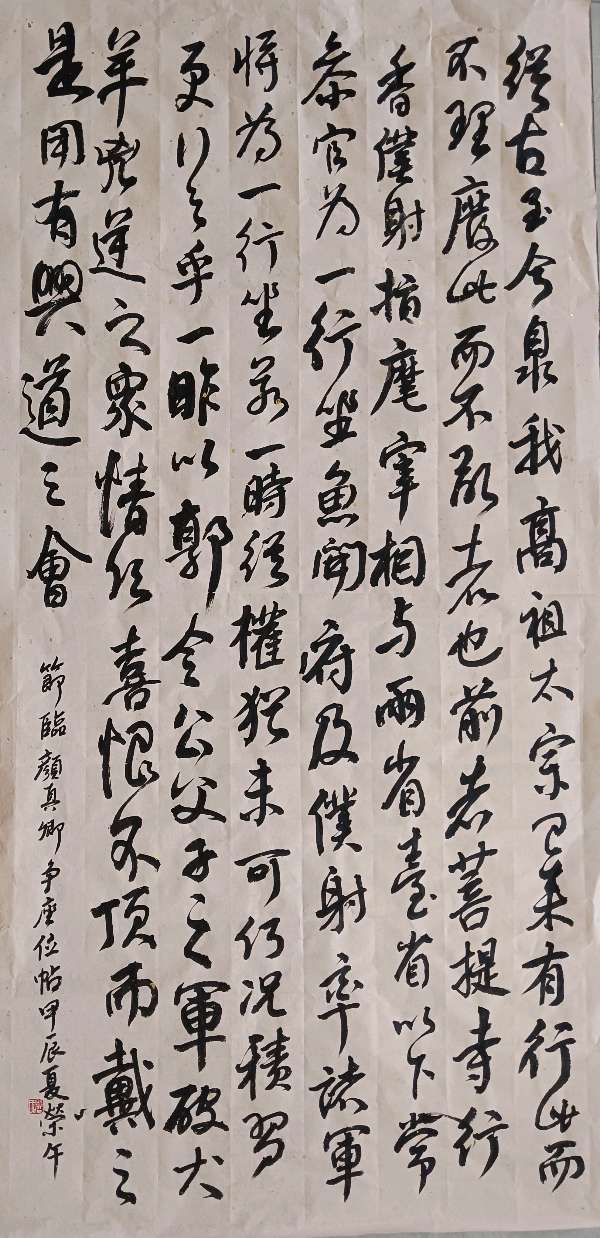 從古至今泉我高祖太宗已来有行此而
不理廢此而不亂者也前者菩提寺行
香僕射指麾宰相与兩省臺省以下常
叅官为一行坐魚開府及僕射率諸軍
將为一行坐若一時從權猶未可何况積習
更行之乎一昨以郭令公父子之軍破犬
羊兇逆之眾情欣喜恨不頂而戴之
是用有興道之會
節臨顏真卿争座位帖甲辰夏榮午